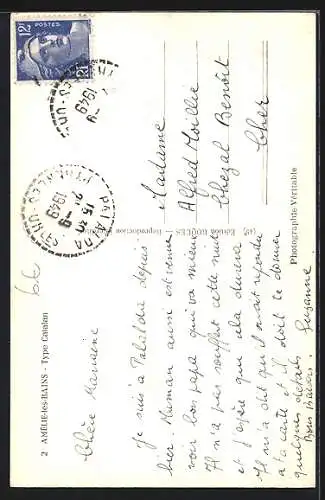 2 AMÉLIE-les-BAINS - Type Catalan
66
Chère Marraine
Je suis à Palalda depuis
hier. Maman aussi est venue
voir bon papa qui va mieux
Il n'a pas souffert cette nuit
et j'espère que cela durera
Il m'a dit qu'il avait répondu
à ta carte et il doit te donner
quelques détails
Bons Baisers. Suzanne
Edition ROUQUES - Reproduction
Photographie Véritable
Madame
Alfred
Chezal Benoît
Cher
12F
POSTES
PALALDA
15 30
-9
1949
PYRÉNÉES-ORles
-9
1949